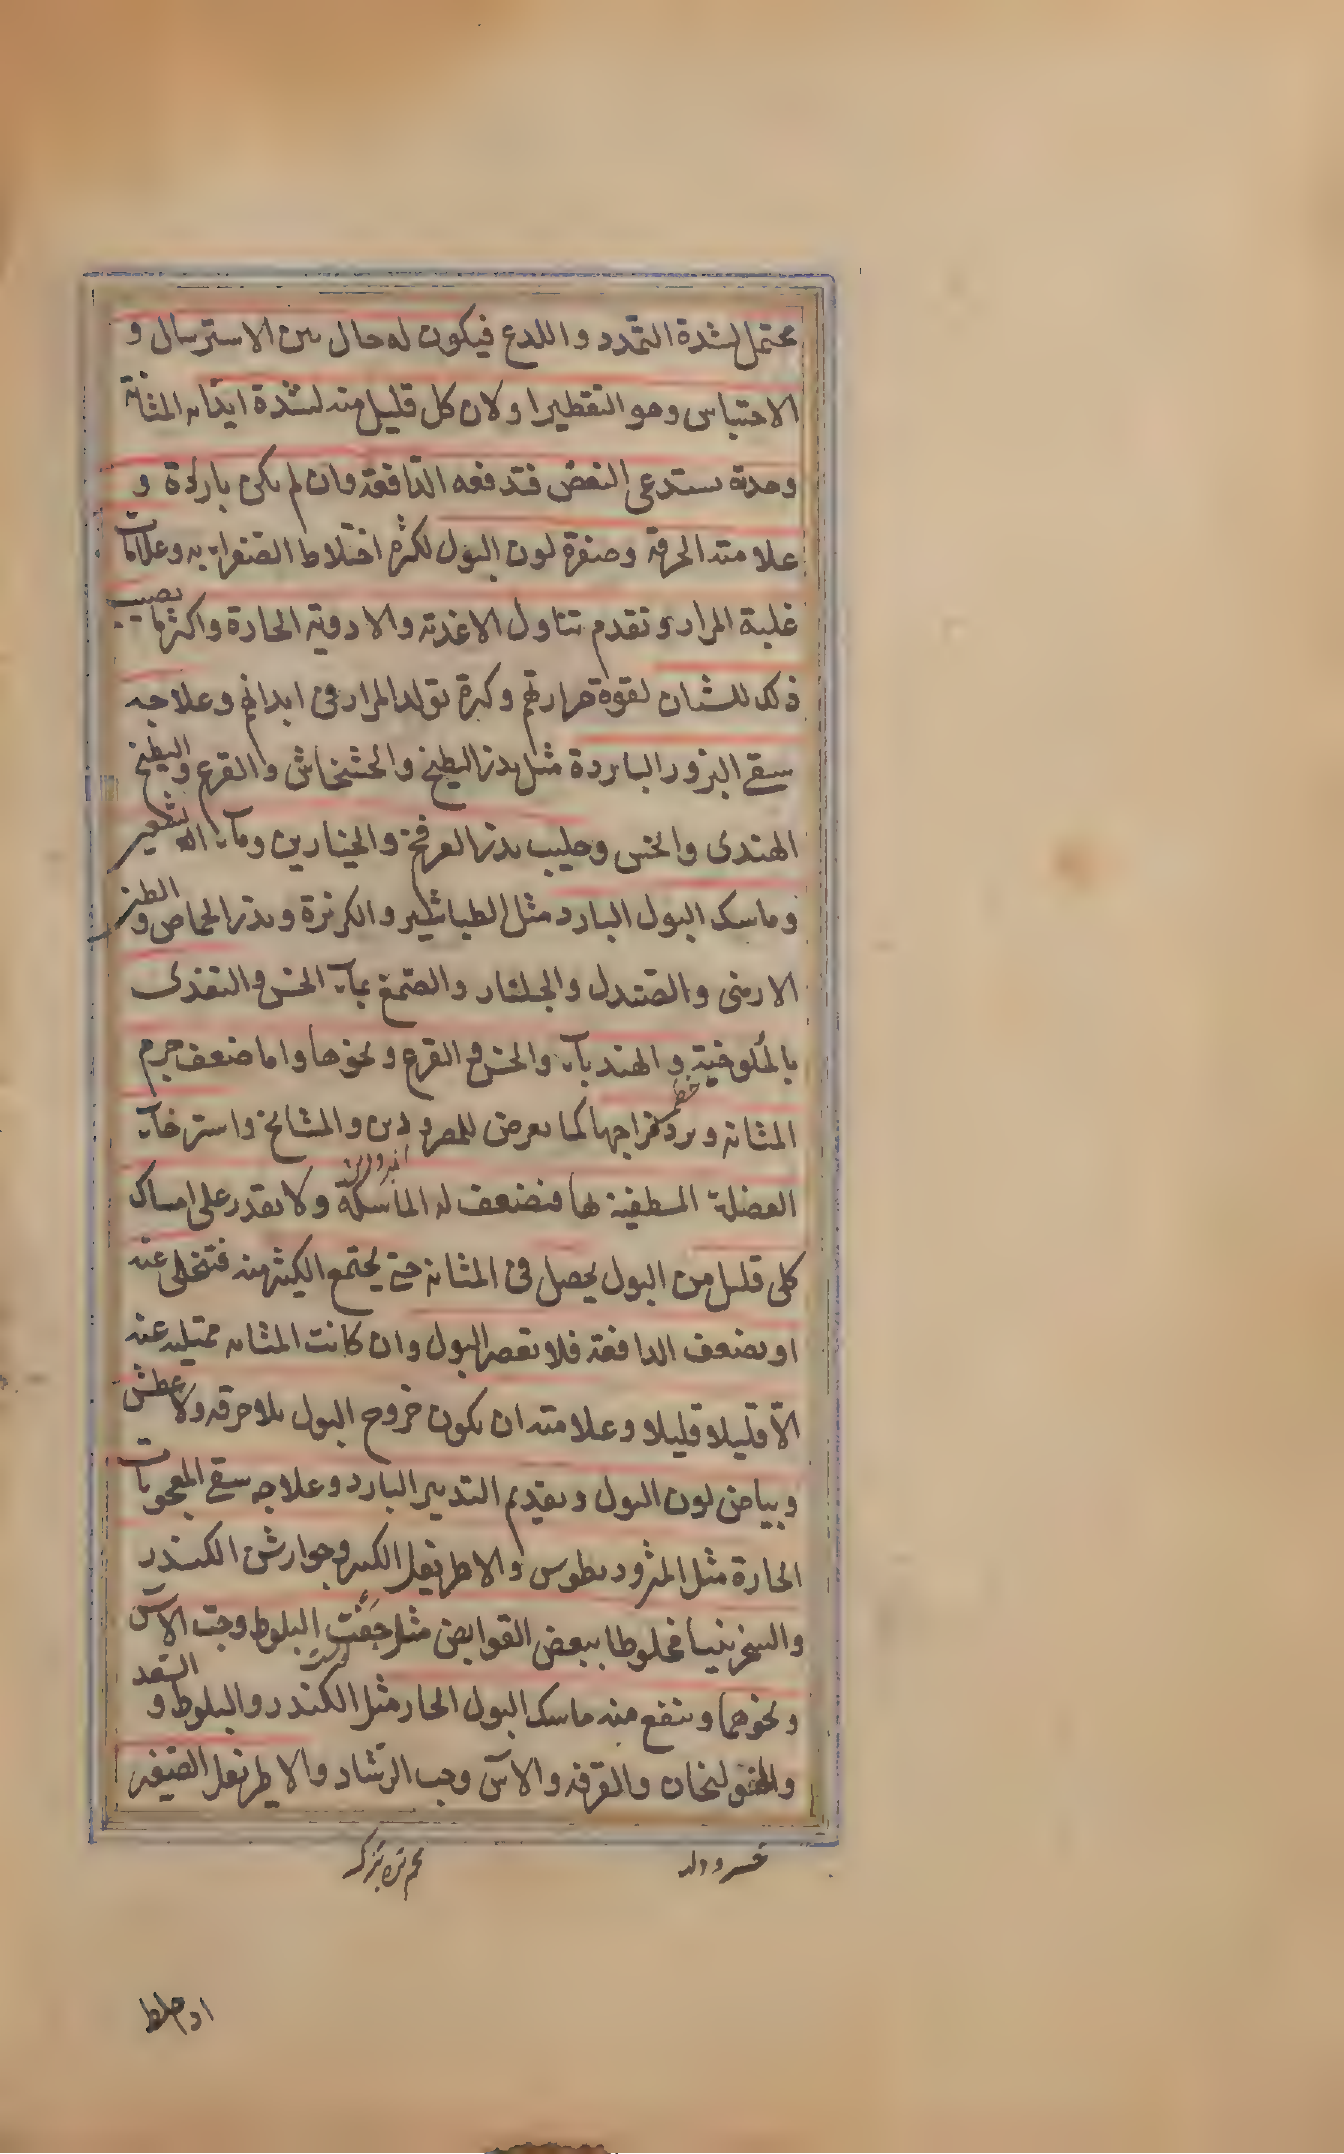 يحتمل لشدة التمدد واللدع فيكون له حال بين الاسترسال و
الاحتباس وهو التقطير او لان كل قليل منه لشدة ايذائه المثانة
وحدته يستدعى النفض فتدفعه الدافعة وان لم يكن بارادة و
علامته الحرقة وصفرة لون البول لكثرة اختلاط الصفراء به وعلامات
غلبة المرار وتقدم تناول الاغذية والادوية الحارة واكثر ما يصيب
ذلك للشبان لقوة حرارتهم وكثرة تولد المرار فى ابدانهم وعلاجه
سقى البزور الباردة مثل بذر البطيخ والخشخاش والقرع والبطيخ
الهندى والخس وحليب بذر العرفج والخيارين وماء الشعير
وماسك البول البارد مثل الطباشير والكزبرة وبذر الحماض و الطين
الارمنى والصندل والجلنار والصمغ بماء الخس والتغذى
بالملوخية و الهندباء والخس و القرع ونحوها واما ضعف جرم
المثانة وبرد مزاجها كما يعرض للمبرودين والمشايخ واسترخاء
العضلة المطيفة بها فيضعف له الماسكة ولا يقدر على امساك
كل قليل من البول يحصل فى المثانة حتى يجتمع الكثير منه فتتخلى عنه
او يضعف الدافعة فلا تعصر البول وان كانت المثانة ممتلية عنه
الّا قليلا قليلا وعلامته ان يكون خروج البول بلا حرقة ولا عطش
وبياض لون البول وتقديم التدبير البارد وعلاجه سقى المعجونات
الحارة مثل المثروديطوس والاطريفل الكبير وجوارش الكندر
والسخرينيا مخلوطا ببعض القوابض مثل جَفْت البلوط وحب الآس
ونحوهما وينفع منه ماسك البول الحار مثل الكندر والبلوط و السعد
والخولنجان والقرفة والآس وحب الرشاد والاطريفل الصغير
خسرو دلد
تخم تره تيزك